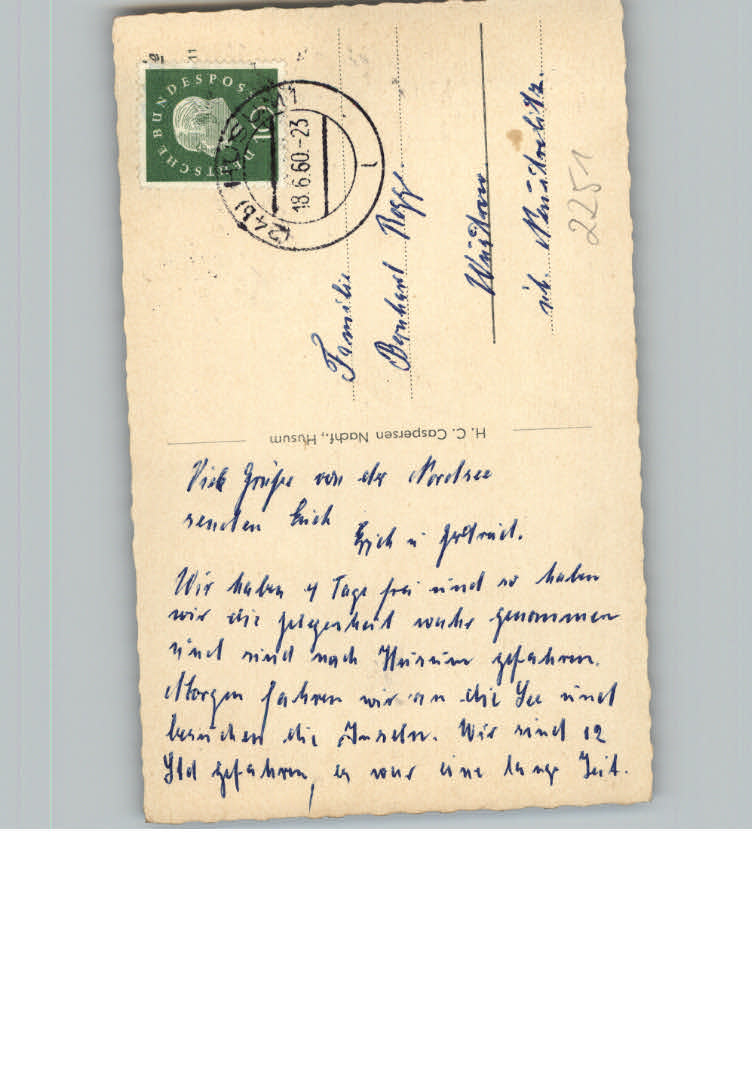 DEUTSCHE BUNDESPOST
(24b) HUSUM 1
18.6.60.-23
Familie
Bernhard Rogge
Wustrow
üb. Neustrelitz.
2251
H. C. Caspersen Nachf., Husum
Viele Grüße von der Nordsee
senden Euch
Erich u Gertrud.
Wir haben 4 Tage frei und so haben
wir die gelegenheit wahr genommen
und sind nach Husum gefahren.
Morgen fahren wir an die See und
besuchen die Inseln. Wir sind 12
Std gefahren, es war eine lange Zeit.